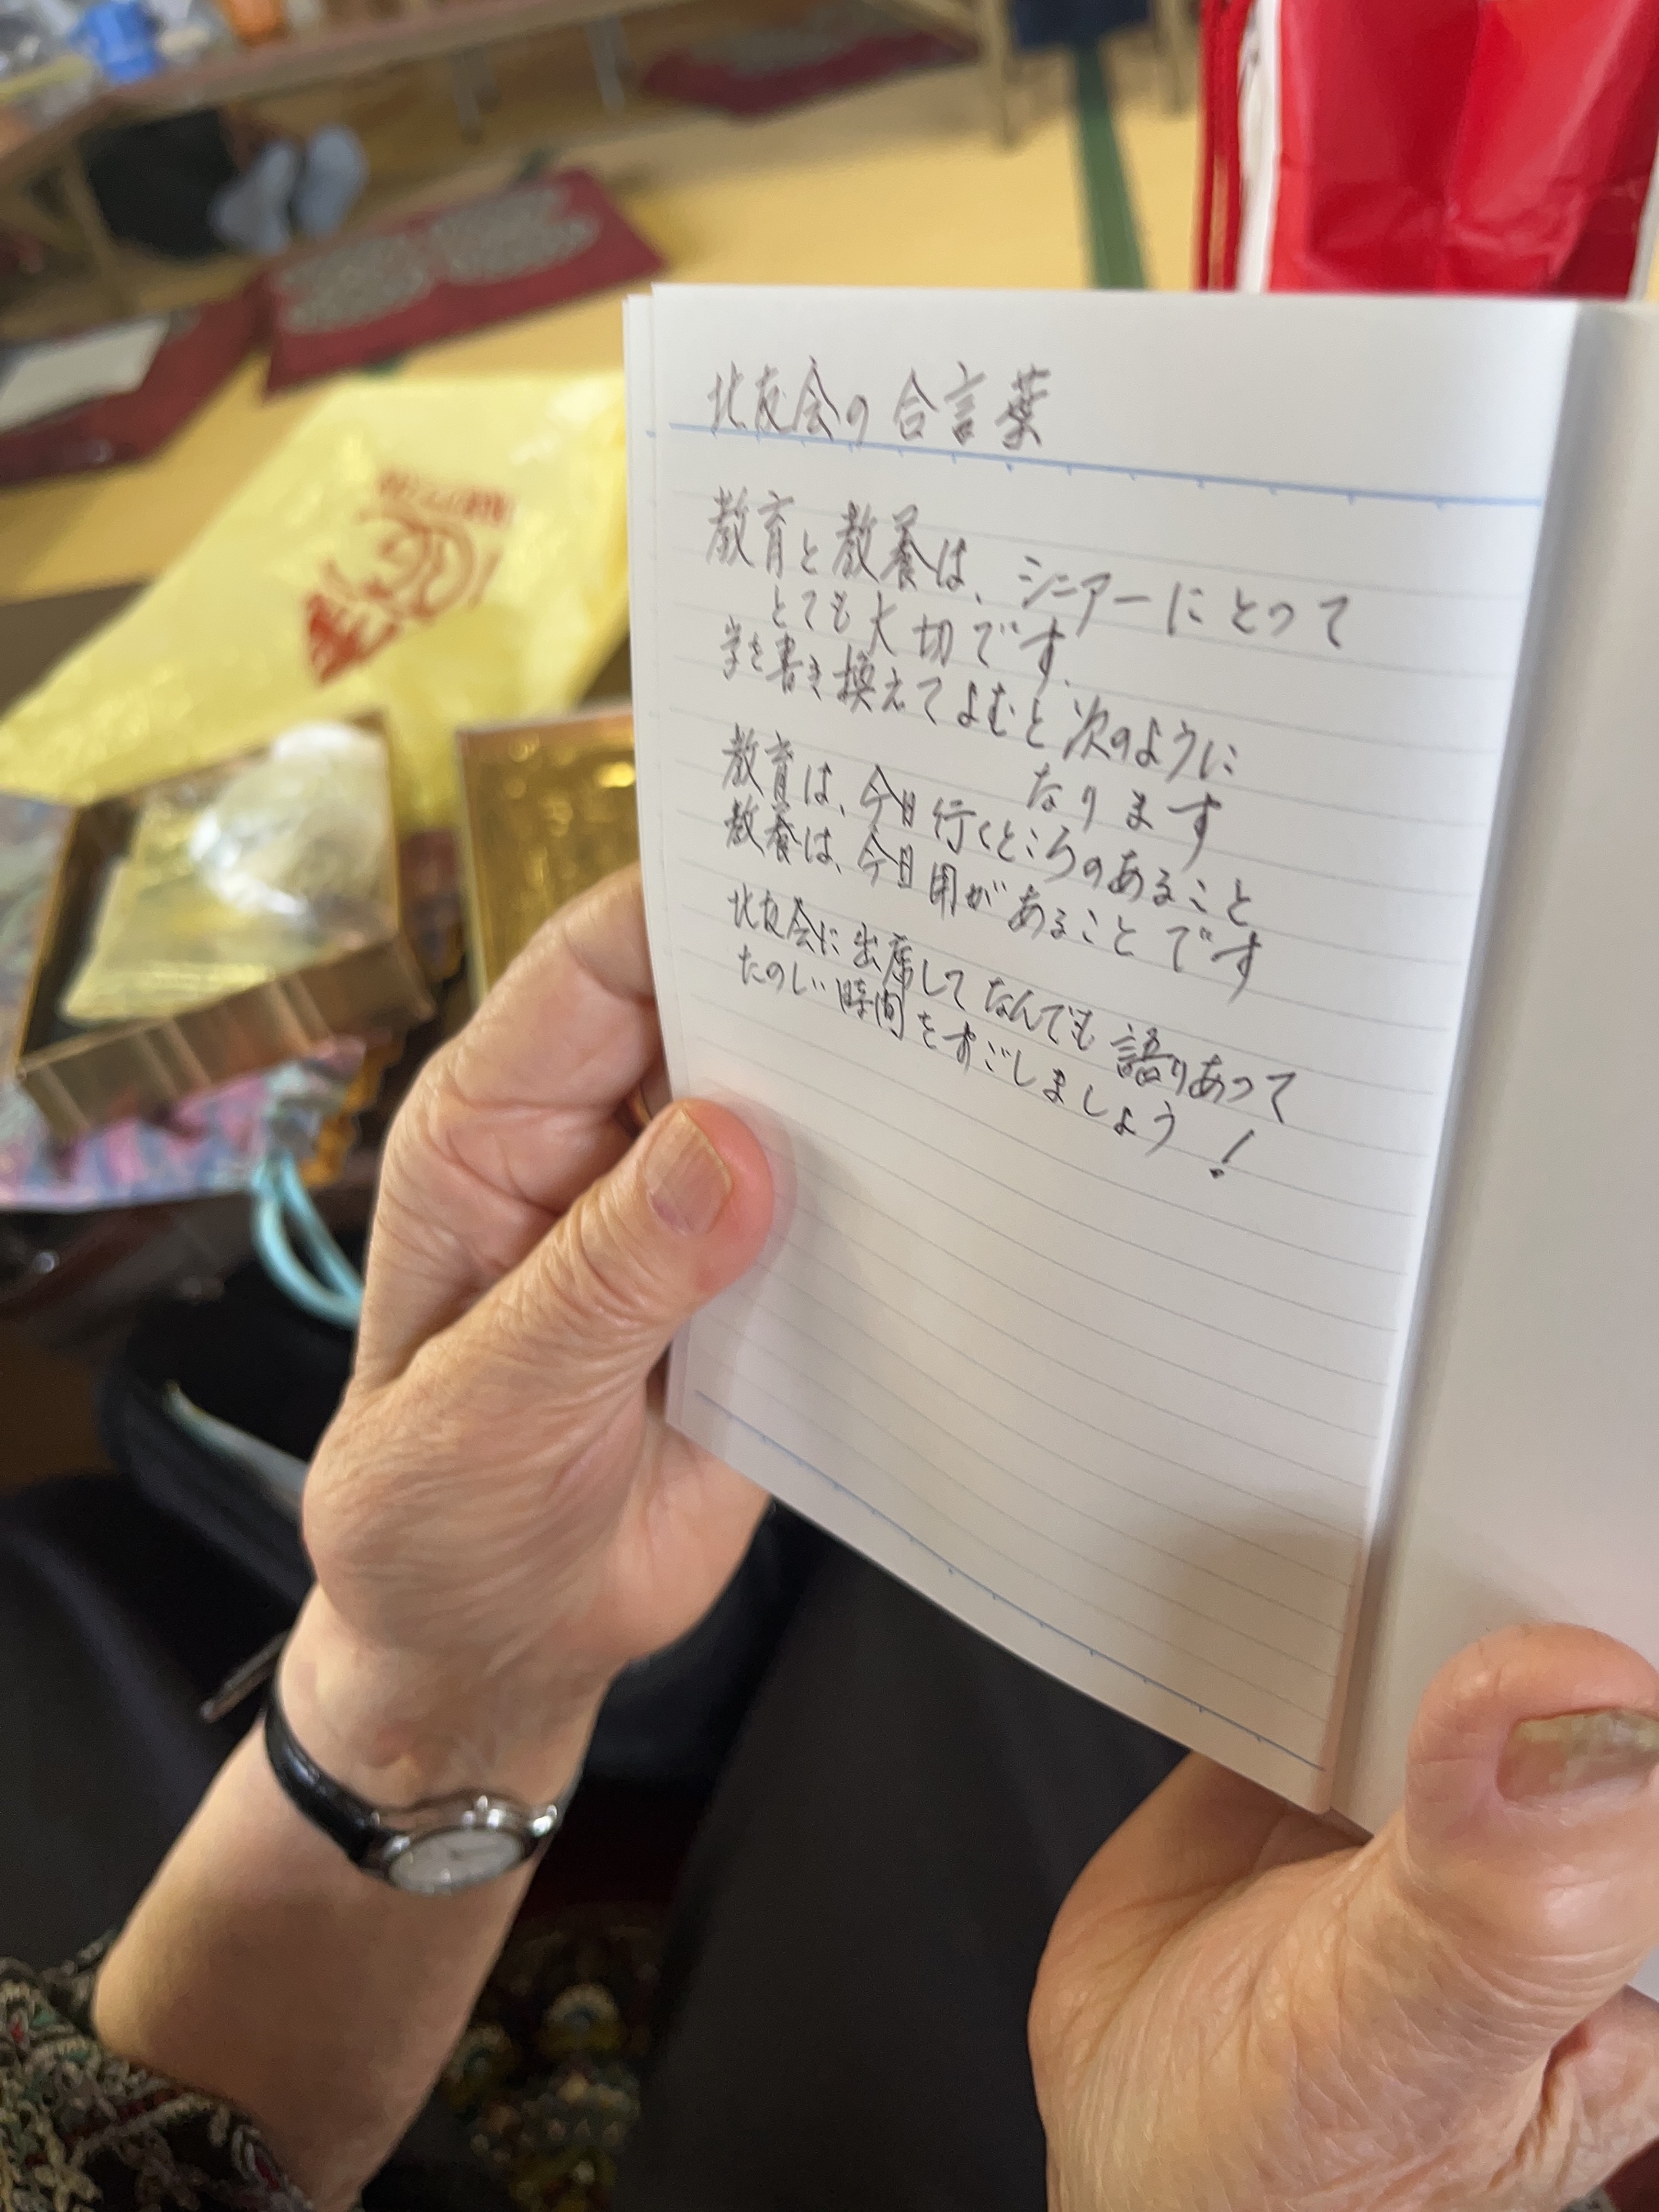 北友会の合言葉
教育と教養は、シニアーにとって
とても大切です。
字を書き換えてよむと次のように
なります
教育は、今日行くところのあること
教養は、今日用があることです
北友会に出席してなんでも語りあって
たのしい時間をすごしましょう!